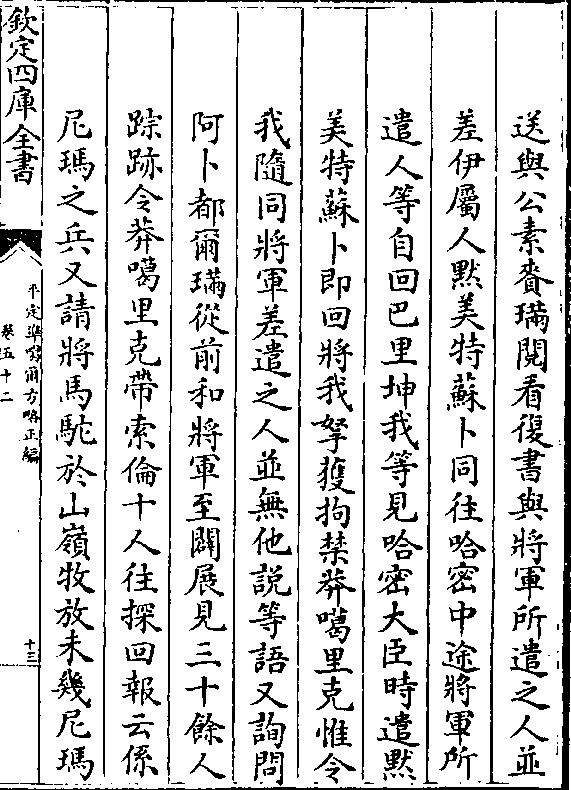 送與公素賚璊閱看復書與將軍所遣之人並
差伊屬人黙美特蘇卜同往哈密中途將軍所
遣人等自回巴里坤我等見哈密大臣時遣黙
美特蘇卜即回將我拏獲拘禁莽噶里克惟令
我隨同將軍差遣之人並無他説等語又詢問
阿卜都爾璊從前和將軍至闢展見三十餘人
踪跡令莽噶里克帶索倫十人往探回報云係
尼瑪之兵又請將馬駝於山嶺牧放未幾尼瑪
欽定四庫全書
平定準噶爾方略正編
卷五十二
十三